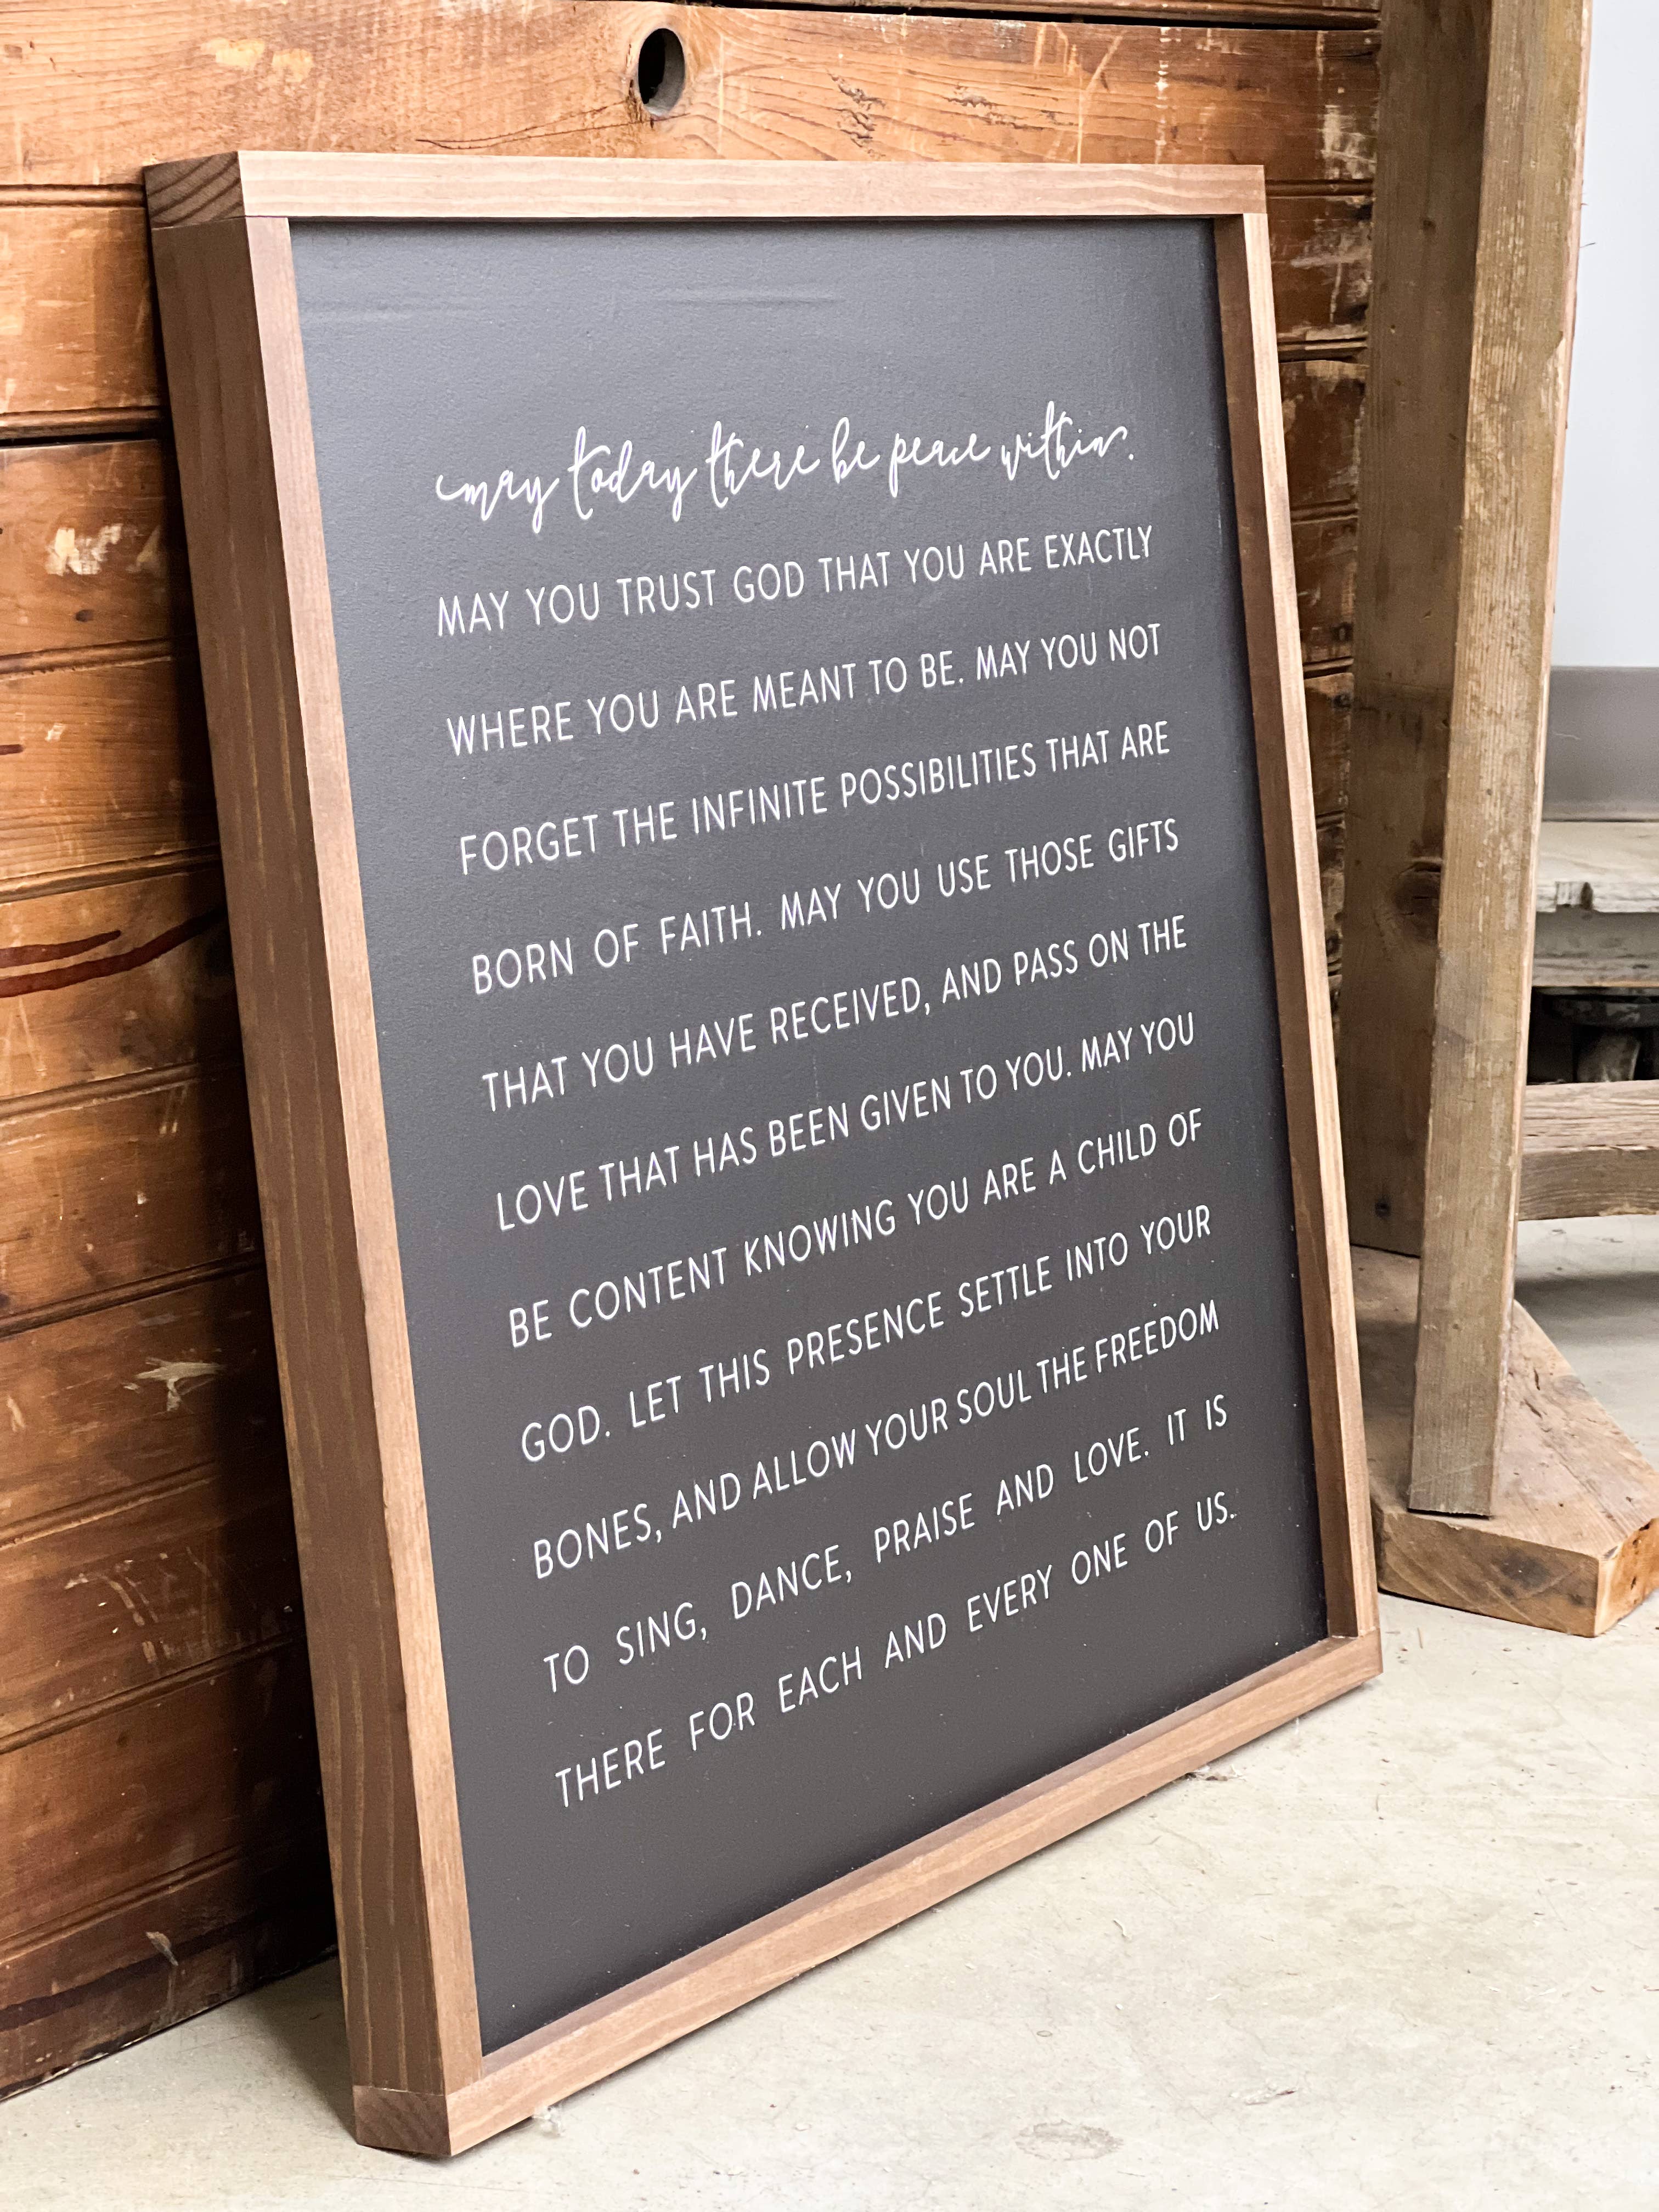 may today there be peace within.
MAY YOU TRUST GOD THAT YOU ARE EXACTLY
WHERE YOU ARE MEANT TO BE. MAY YOU NOT
FORGET THE INFINITE POSSIBILITIES THAT ARE
BORN OF FAITH. MAY YOU USE THOSE GIFTS
THAT YOU HAVE RECEIVED, AND PASS ON THE
LOVE THAT HAS BEEN GIVEN TO YOU. MAY YOU
BE CONTENT KNOWING YOU ARE A CHILD OF
GOD. LET THIS PRESENCE SETTLE INTO YOUR
BONES, AND ALLOW YOUR SOUL THE FREEDOM
TO SING, DANCE, PRAISE AND LOVE. IT IS
THERE FOR EACH AND EVERY ONE OF US.